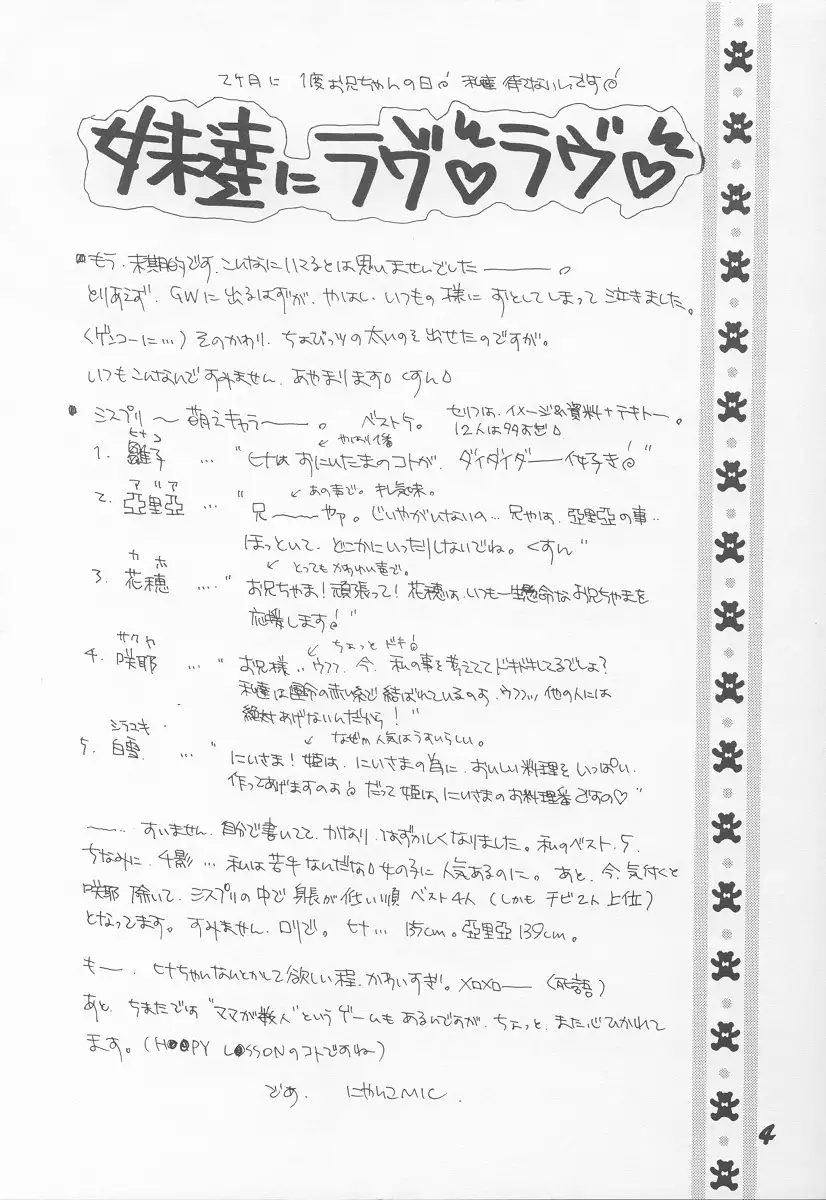 2ケ月に 1度お兄ちゃんの日♂ 私達 待てないしっです♂
妹達にラヴ♡ラヴ♡
もう、末期的です、こんなにハマるとは思いませんでした———。
とりあえず、GWに出るはずが、やはし、いつもの様に ずとしてしまって 泣きました。
(ゲンコーに…) そのかわり、ちょびっツの太いのを出せたのですが。
いつもこんなんですみません、あやまります。くすん。
シスプリ〜萌えキャラ——。 ベスト5。 セリフは、イメージ&資料+テキトー。
12人は多すぎ。
ヒナコ
やはり1番
1. 雛子 … "ヒナは おにいたまのコトが、ダイダイダ——イ好き♂"
アリア
あの声で。キレ気味。
2. 亞里亞 … "兄———やァ。じいやがいないの… 兄やは、亞里亞の事…
ほっといて、どこかにいったりしないでね。くすん"
カホ
とってもかわいい声で。
3. 花穂 …. "お兄ちゃま!頑張って!花穂は、いつも一生懸命なお兄ちゃまを
応援します♂"
サクヤ
ちょっとドキ♂
4. 咲耶 … "お兄様…ウフフ、今、私の事を考えててドキドキしてるでしょ?
私達は運命の赤い糸で結ばれているのよ、ウフフッ、他の人には
絶対あげないんだから!"
シラユキ
なぜか人気はうすいらしい。
5. 白雪. … "にいさま!姫は、にいさまの為に、おいしい料理を いっぱい、
作ってあげますのよ♂ だって姫は、にいさまのお料理番ですの♡"
〜… すいません、自分で書いてて、かなり、はずかしくなりました。私のベスト5。
ちなみに、千影… 私は苦手なんだな。女の子に人気あるのに。あと、今、気付くと
咲耶 除いて、シスプリの中で 身長が低い順 ベスト4人 (しかも チビ2人 上位)
となってます。すみません、ロリで。ヒナ… 135cm。亞里亞139cm。
もー、ヒナちゃいないとかして欲しい程、かわいすぎ。メロメロ—— (死語)
あと、ちまたでは"ママが数人"というゲームもあるんですが、ちょっと、また心ひかれて
ます。(H●●PY L●SSONのコトですね)
であ、 にゃんこMIC.
4